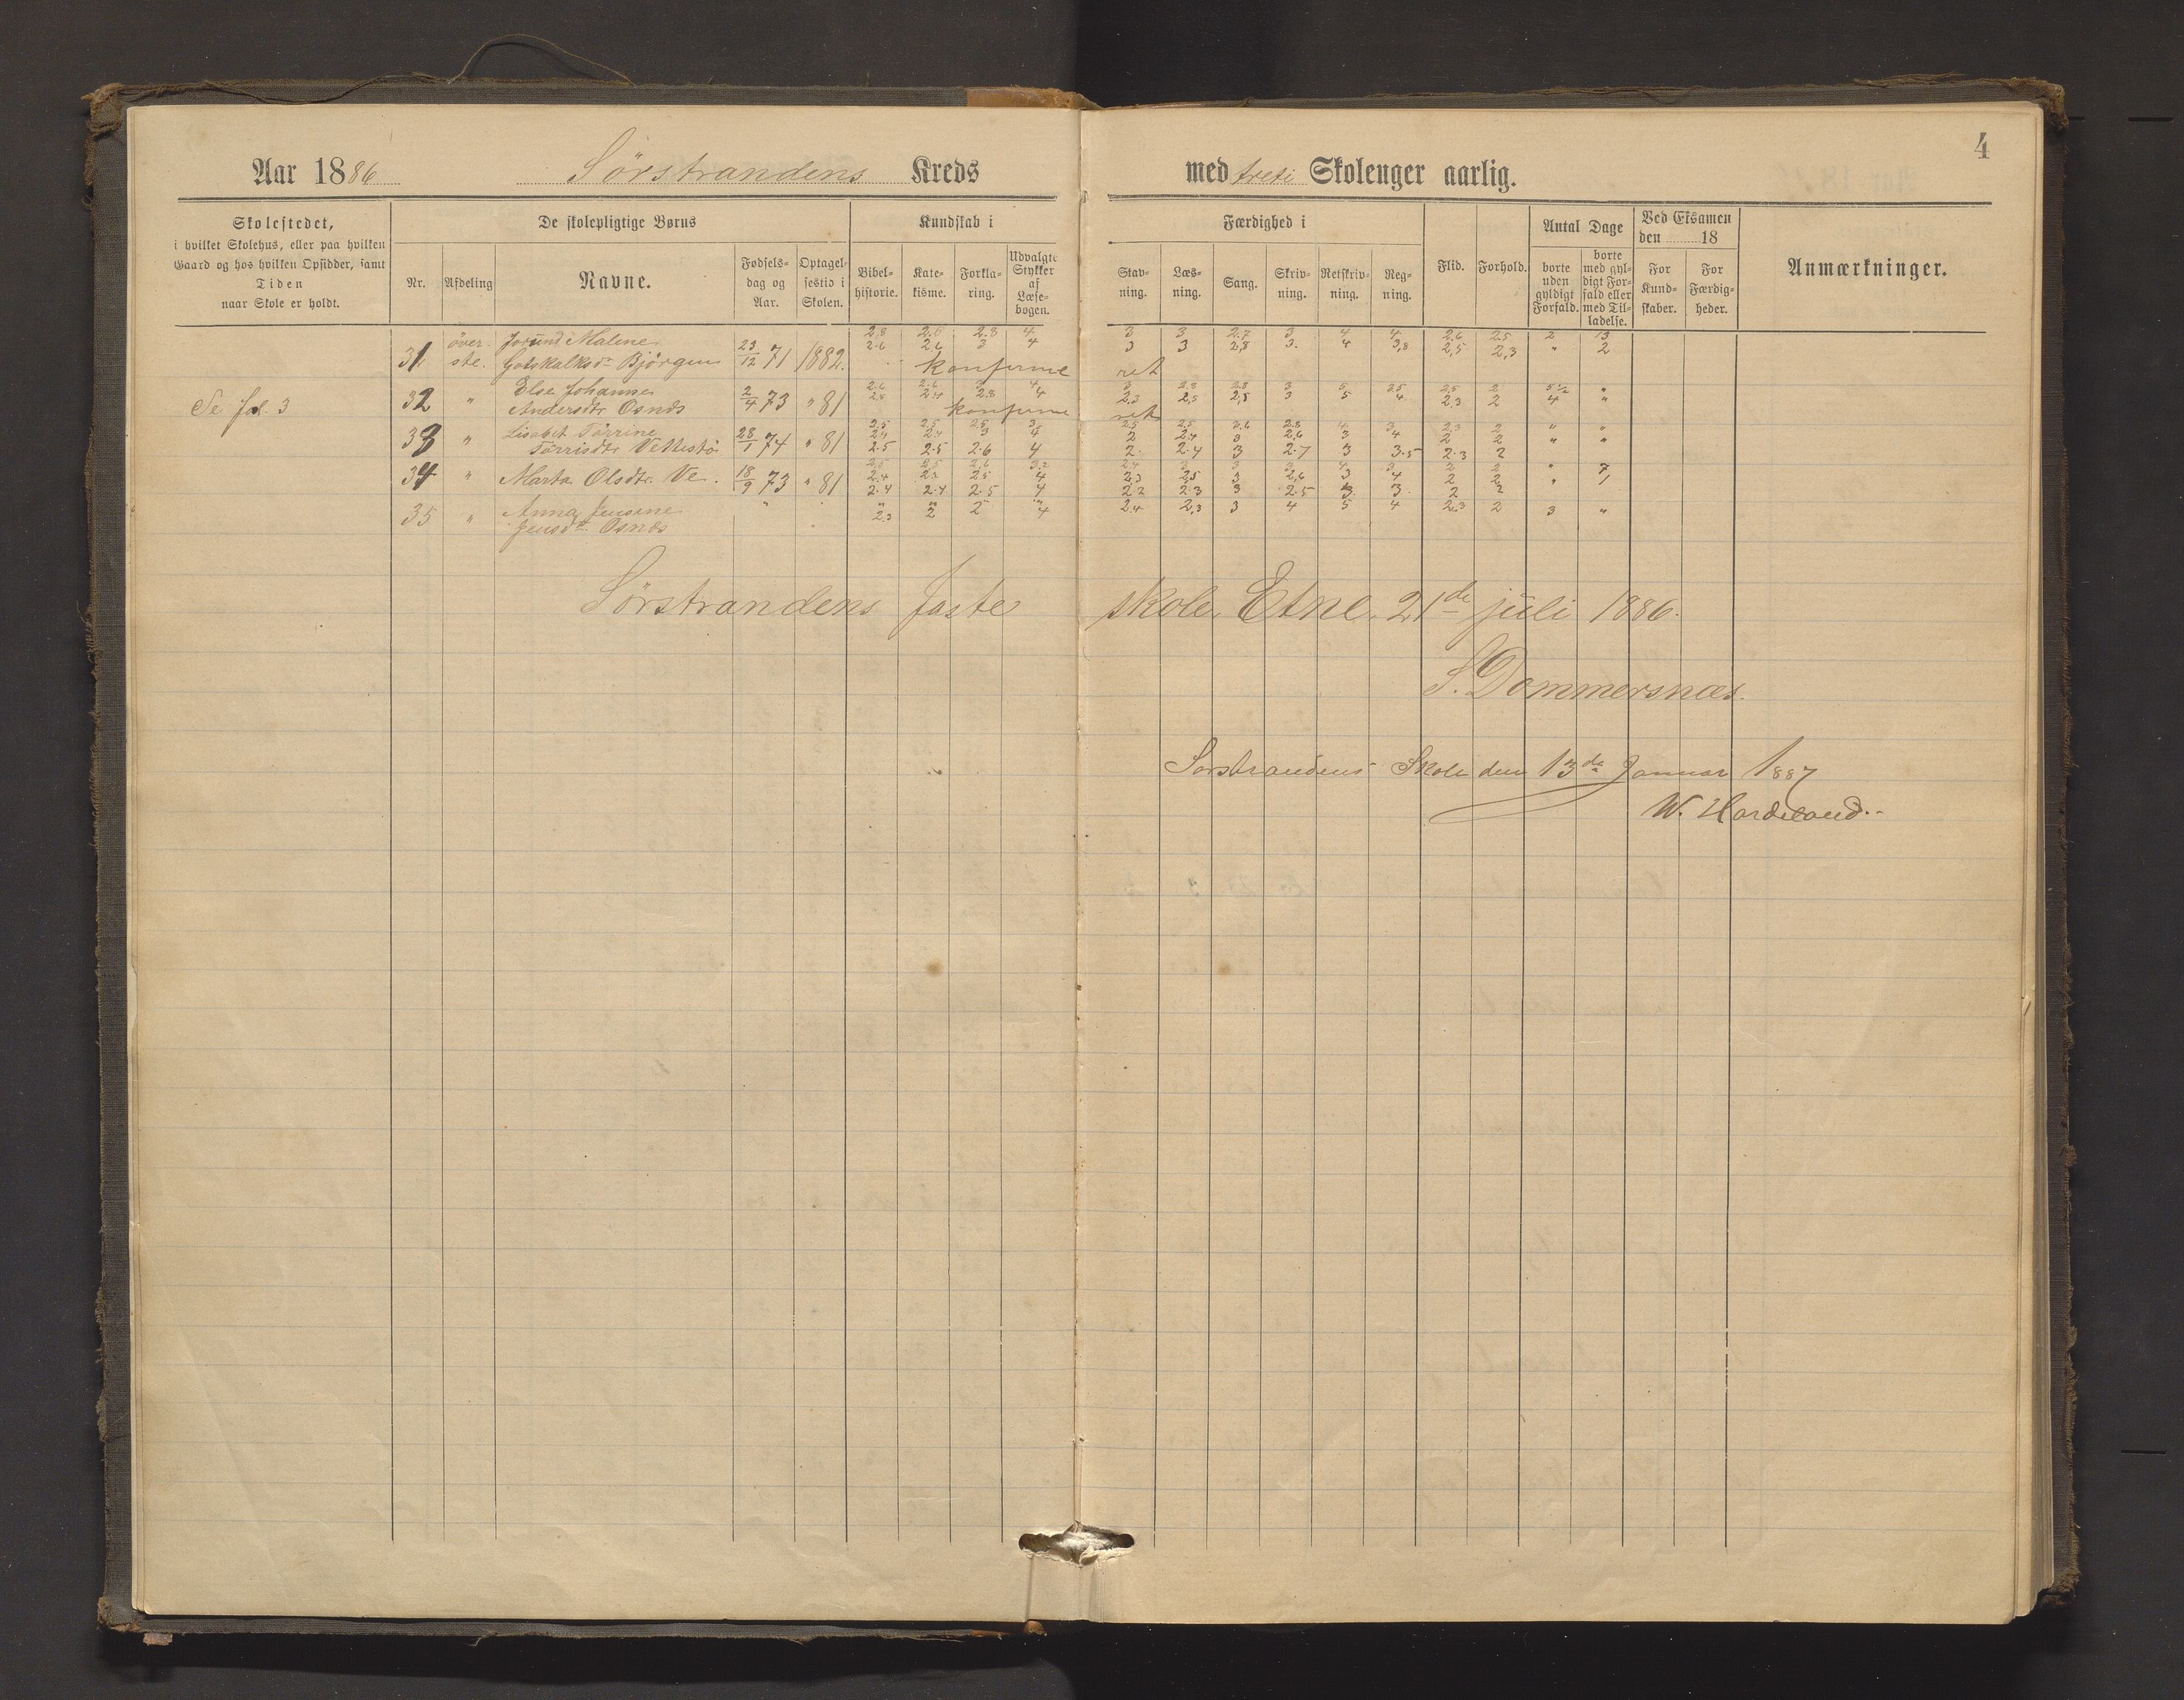 4
Aar 1886 Sörstrandens Kreds med treti Skolenger aarlig.
Skolestedet,
i hvilket Skolehus, eller paa hvilken
Gaard og hos hvilken Opsidder, samt
Tiden
naar Skole er holdt.
De skolepligtige Børns
Nr. Afdeling Navne. Fødsels-dag og Aar. Optagelsestid i Skolen.
Kundskab i
Bibelhistorie. Katekisme. Forklaring. Udvalgte Stykker af Læsebogen.
Færdighed i
Stavning. Læsning. Sang. Skrivning. Retskrivning. Regning.
Flid. Forhold.
Antal Dage
borte uden gyldigt Forfald. borte med gyldigt Forfald eller med Tilladelse.
Ved Eksamen
den 18
For Kundskaber. For Færdigheder.
Anmærkninger.
över Jorund Malene 2.8 2.6 2.8 4 3 3 2.7 3 4 4 2.6 2.5 2 13
31 ste. Gotskalksdr Björgen 23/12 71 1882. 2.6 2.6 3 4 3 3 2,8 3. 4 3,8 2,5 2,3 " 2
konfirmeret
Else Johanne 2.6 2.6 4 3 2.8 2.8 3 5 3.5 2.5 2 5½ "
Se fol. 3 32 " Andersdtr Osnes 2/4 73 " 81 2.5 2.4 2.8 4 2.3 2,5 2,5 3 5 4 2.3 2 4 "
konfirmeret
Lisabet Törrine 2.5 2.5 2.5 3 2.5 2.5 2.6 2.8 4 3 2.3 2 " "
33 " Törrisdtr Vettestö 28/1 74 " 81 2.4 2.4 3 4 2 2.4 3 2,6 3 4 2 2 " "
2.5 2.5 2.6 4 2. 2.4 3 2.7 3 3.5 2.3 2
34 " Marta Olsdtr. Ve. 18/9 73 " 81 2.4 2.5 4 2,3 2,5 3 2,6 3 4 2 2 " 7
2.4 2.4 2.5 4 2.2 2.3 3 2.5 3 3 2 2 " 1
35 " Anna Jensine " 2.3 2 2 4 2.4 2,3 3 4 5 4 2.3 2 3 "
Jensdtr Osnes
Sörstrandens faste skole, Etne, 21de juli 1886.
S. Dommersnæs.
Sørstrandens Skole den 13de Januar 1887
W. Hardeland.